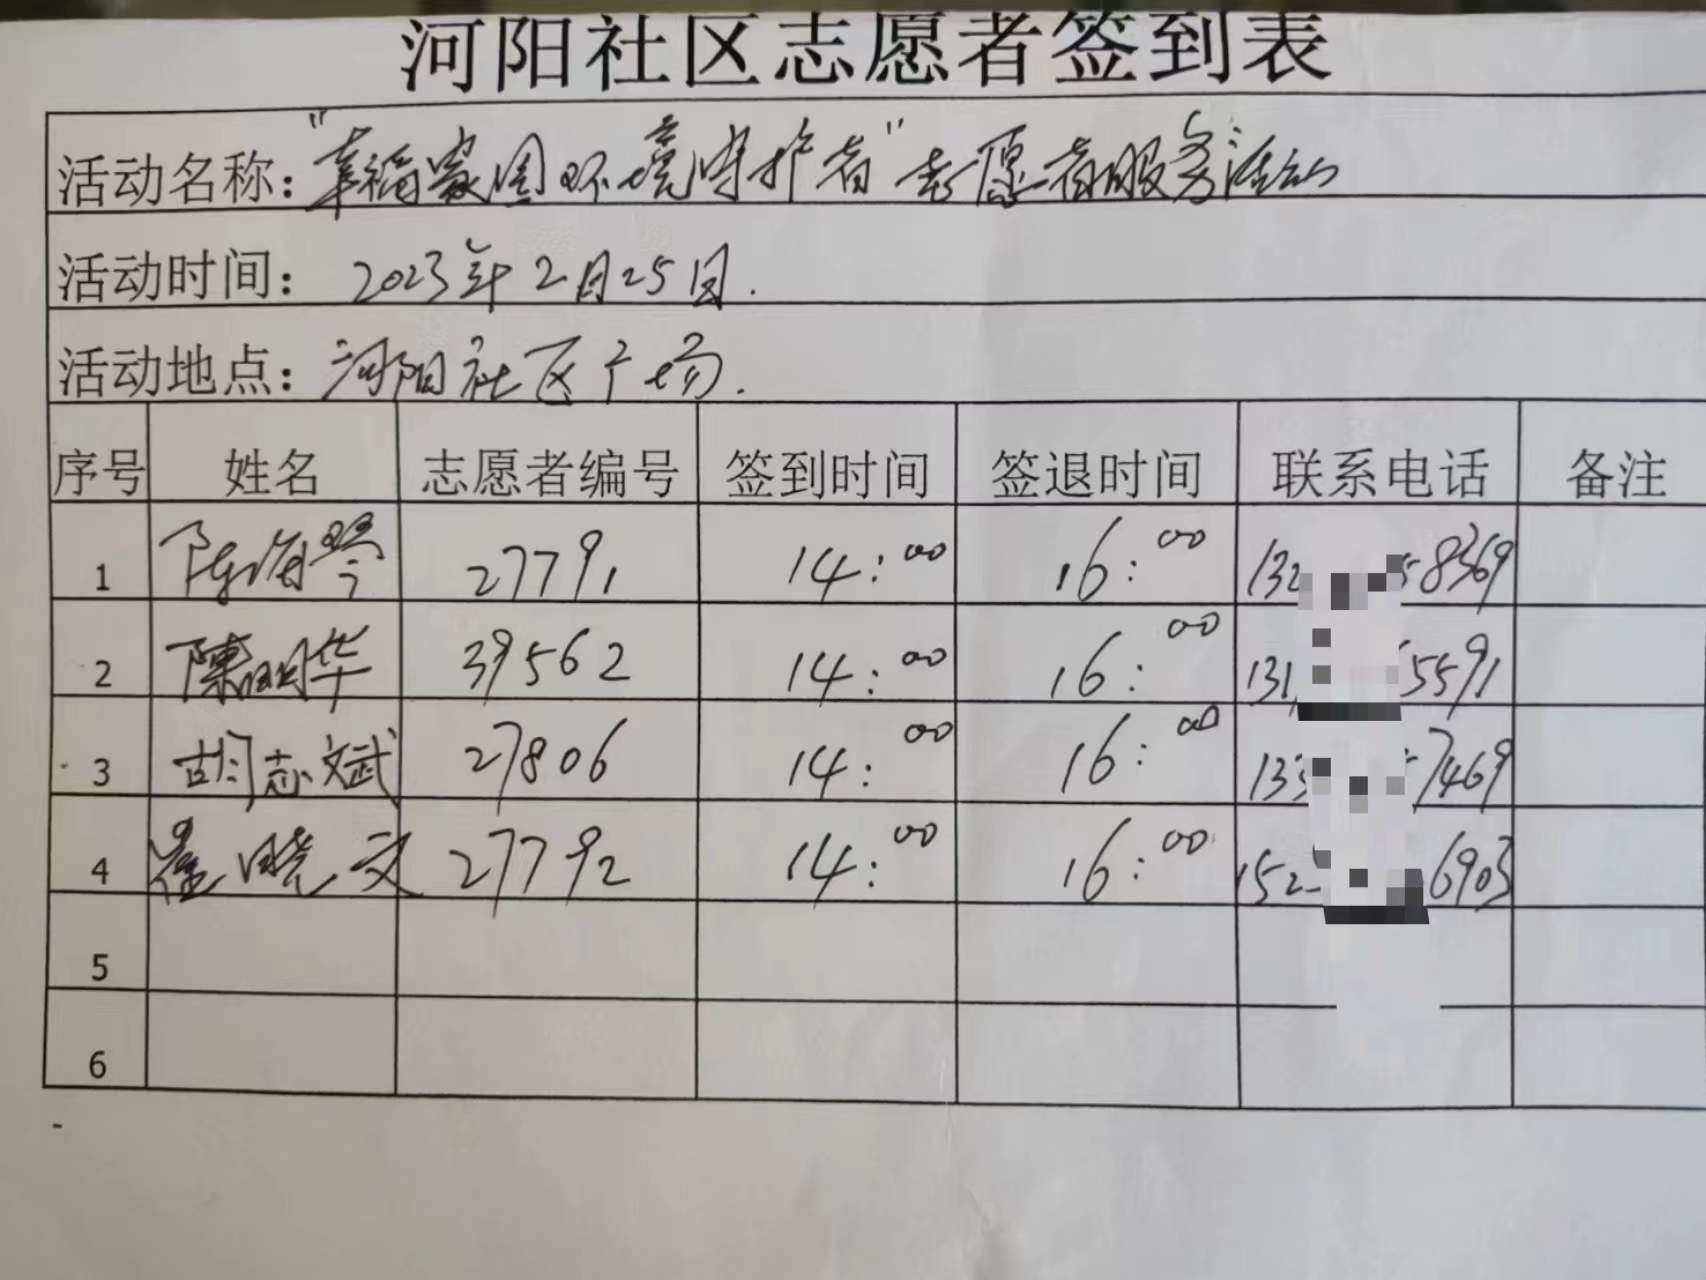 河阳社区志愿者签到表
活动名称："幸福家园环境守护者"志愿者服务活动
活动时间： 2023年2月25日.
活动地点：河阳社区广场.
序号 姓名 志愿者编号 签到时间 签退时间 联系电话 备注
1 陈海琴 27791 14:00 16:00 132 58369
2 陳明华 39562 14:00 16:00 131 5591
3 胡志斌 27806 14:00 16:00 133 7469
4 崔晓文 27792 14:00 16:00 152 6903
5
6